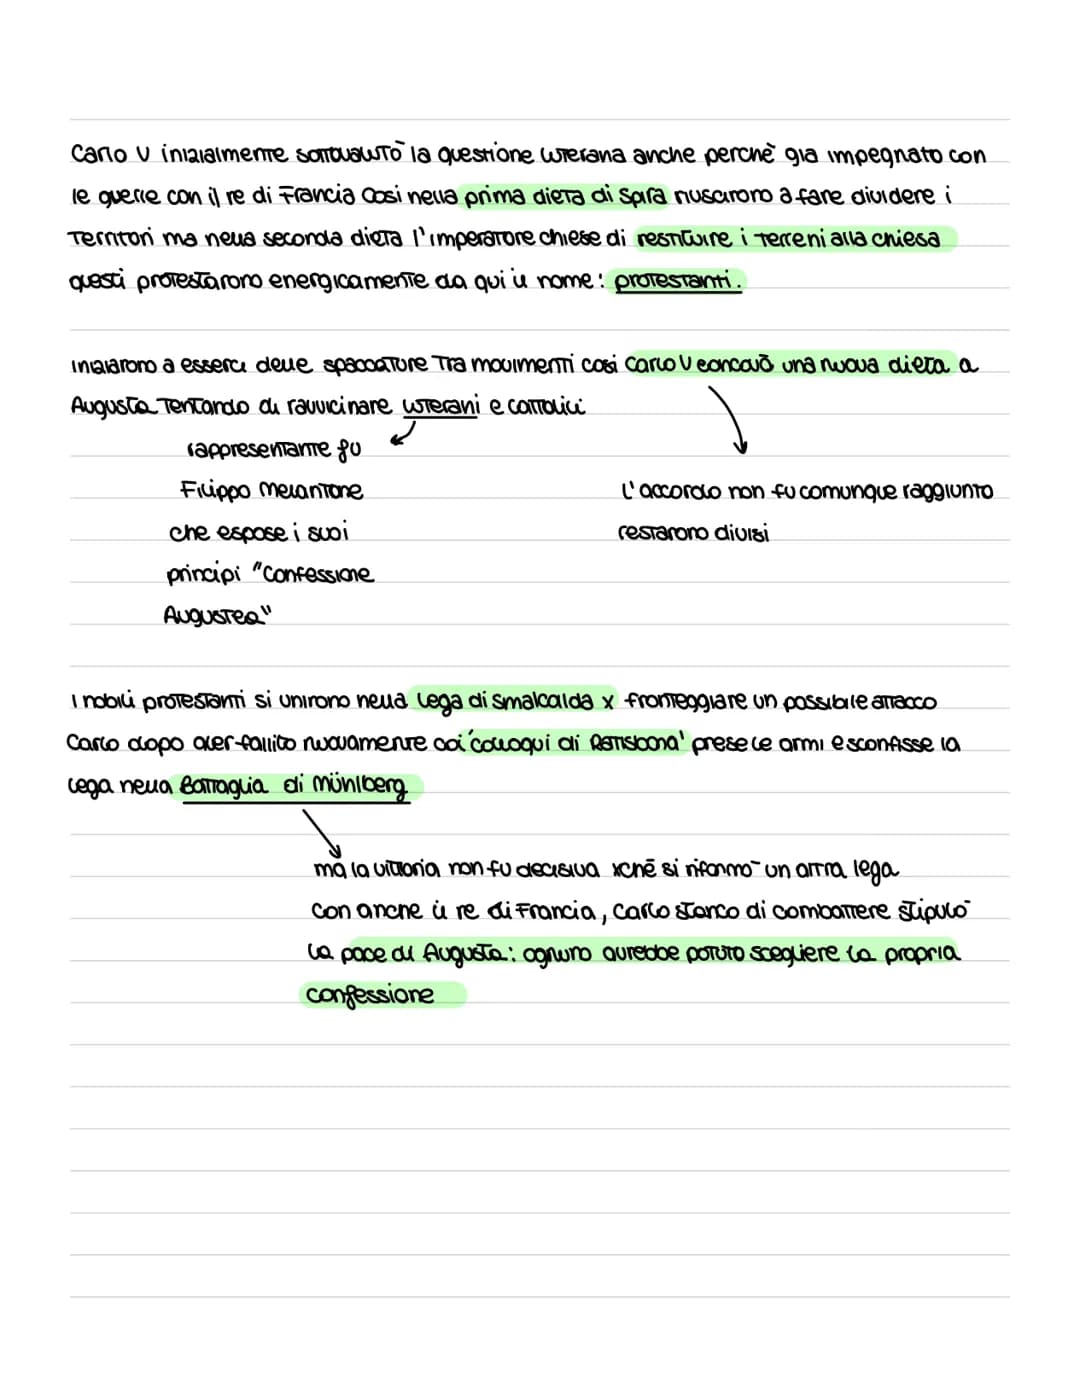 Carlo V inizialmente sottovalutò la questione luterana anche perchè già impegnato con
le guerre con il re di Francia Così nella prima dieta di Spira riuscirono a fare dividere i
Territori ma nella seconda dieta l'imperatore chiese di restituire i terreni alla chiesa
questi protestarono energicamente da qui il nome: protestanti.
Iniziarono a esserci delle spaccature tra movimenti così Carlo V concovò una nuova dieta a
Augusta tentando di ravvicinare luterani e cattolici
rappresentante fu
Filippo Melantone
che espose i suoi
principi "Confessione
Augustea"
L'accordo non fu comunque raggiunto
restarono divisi
I nobili protestanti si unirono nella Lega di Smalcalda x fronteggiare un possibile attacco
Carlo dopo aver fallito nuovamente coi 'colloqui di Ratisbona' prese le armi e sconfisse la
lega nella Battaglia di Münlberg
ma la vittoria non fu decisiva xchè si riformò un altra lega
Con anche il re di Francia, Carlo stanco di combattere stipulò
la pace di Augusta: ognuno avrebbe potuto scegliere la propria
confessione